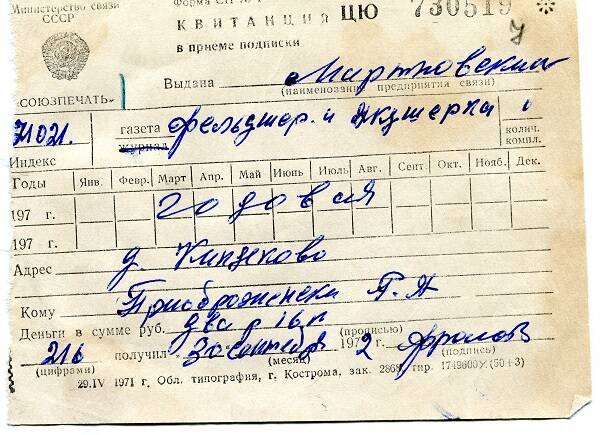 Министерство связи СССР
Форма СП
КВИТАНЦИЯ ЦЮ 730519
в приеме подписки
«СОЮЗПЕЧАТЬ»
Выдана
(наименование предприятия связи)
71021.
Индекс
газета
журнал
фельдшер и акушерка 1
колич. компл.
Годы Янв. Февр. Март Апр. Май Июнь Июль Авг. Сент. Окт. Нояб. Дек.
197 г. годовая
197 г.
Адрес д.
Кому
Деньги в сумме руб. два р 16 к
(прописью)
216 получил 30 сентябр 197 2 г. Фролов
(цифрами) (месяц) (подпись)
29.IV 1971 г. Обл. типография, г. Кострома, зак. 2868, тир. 1749600×(50+3)